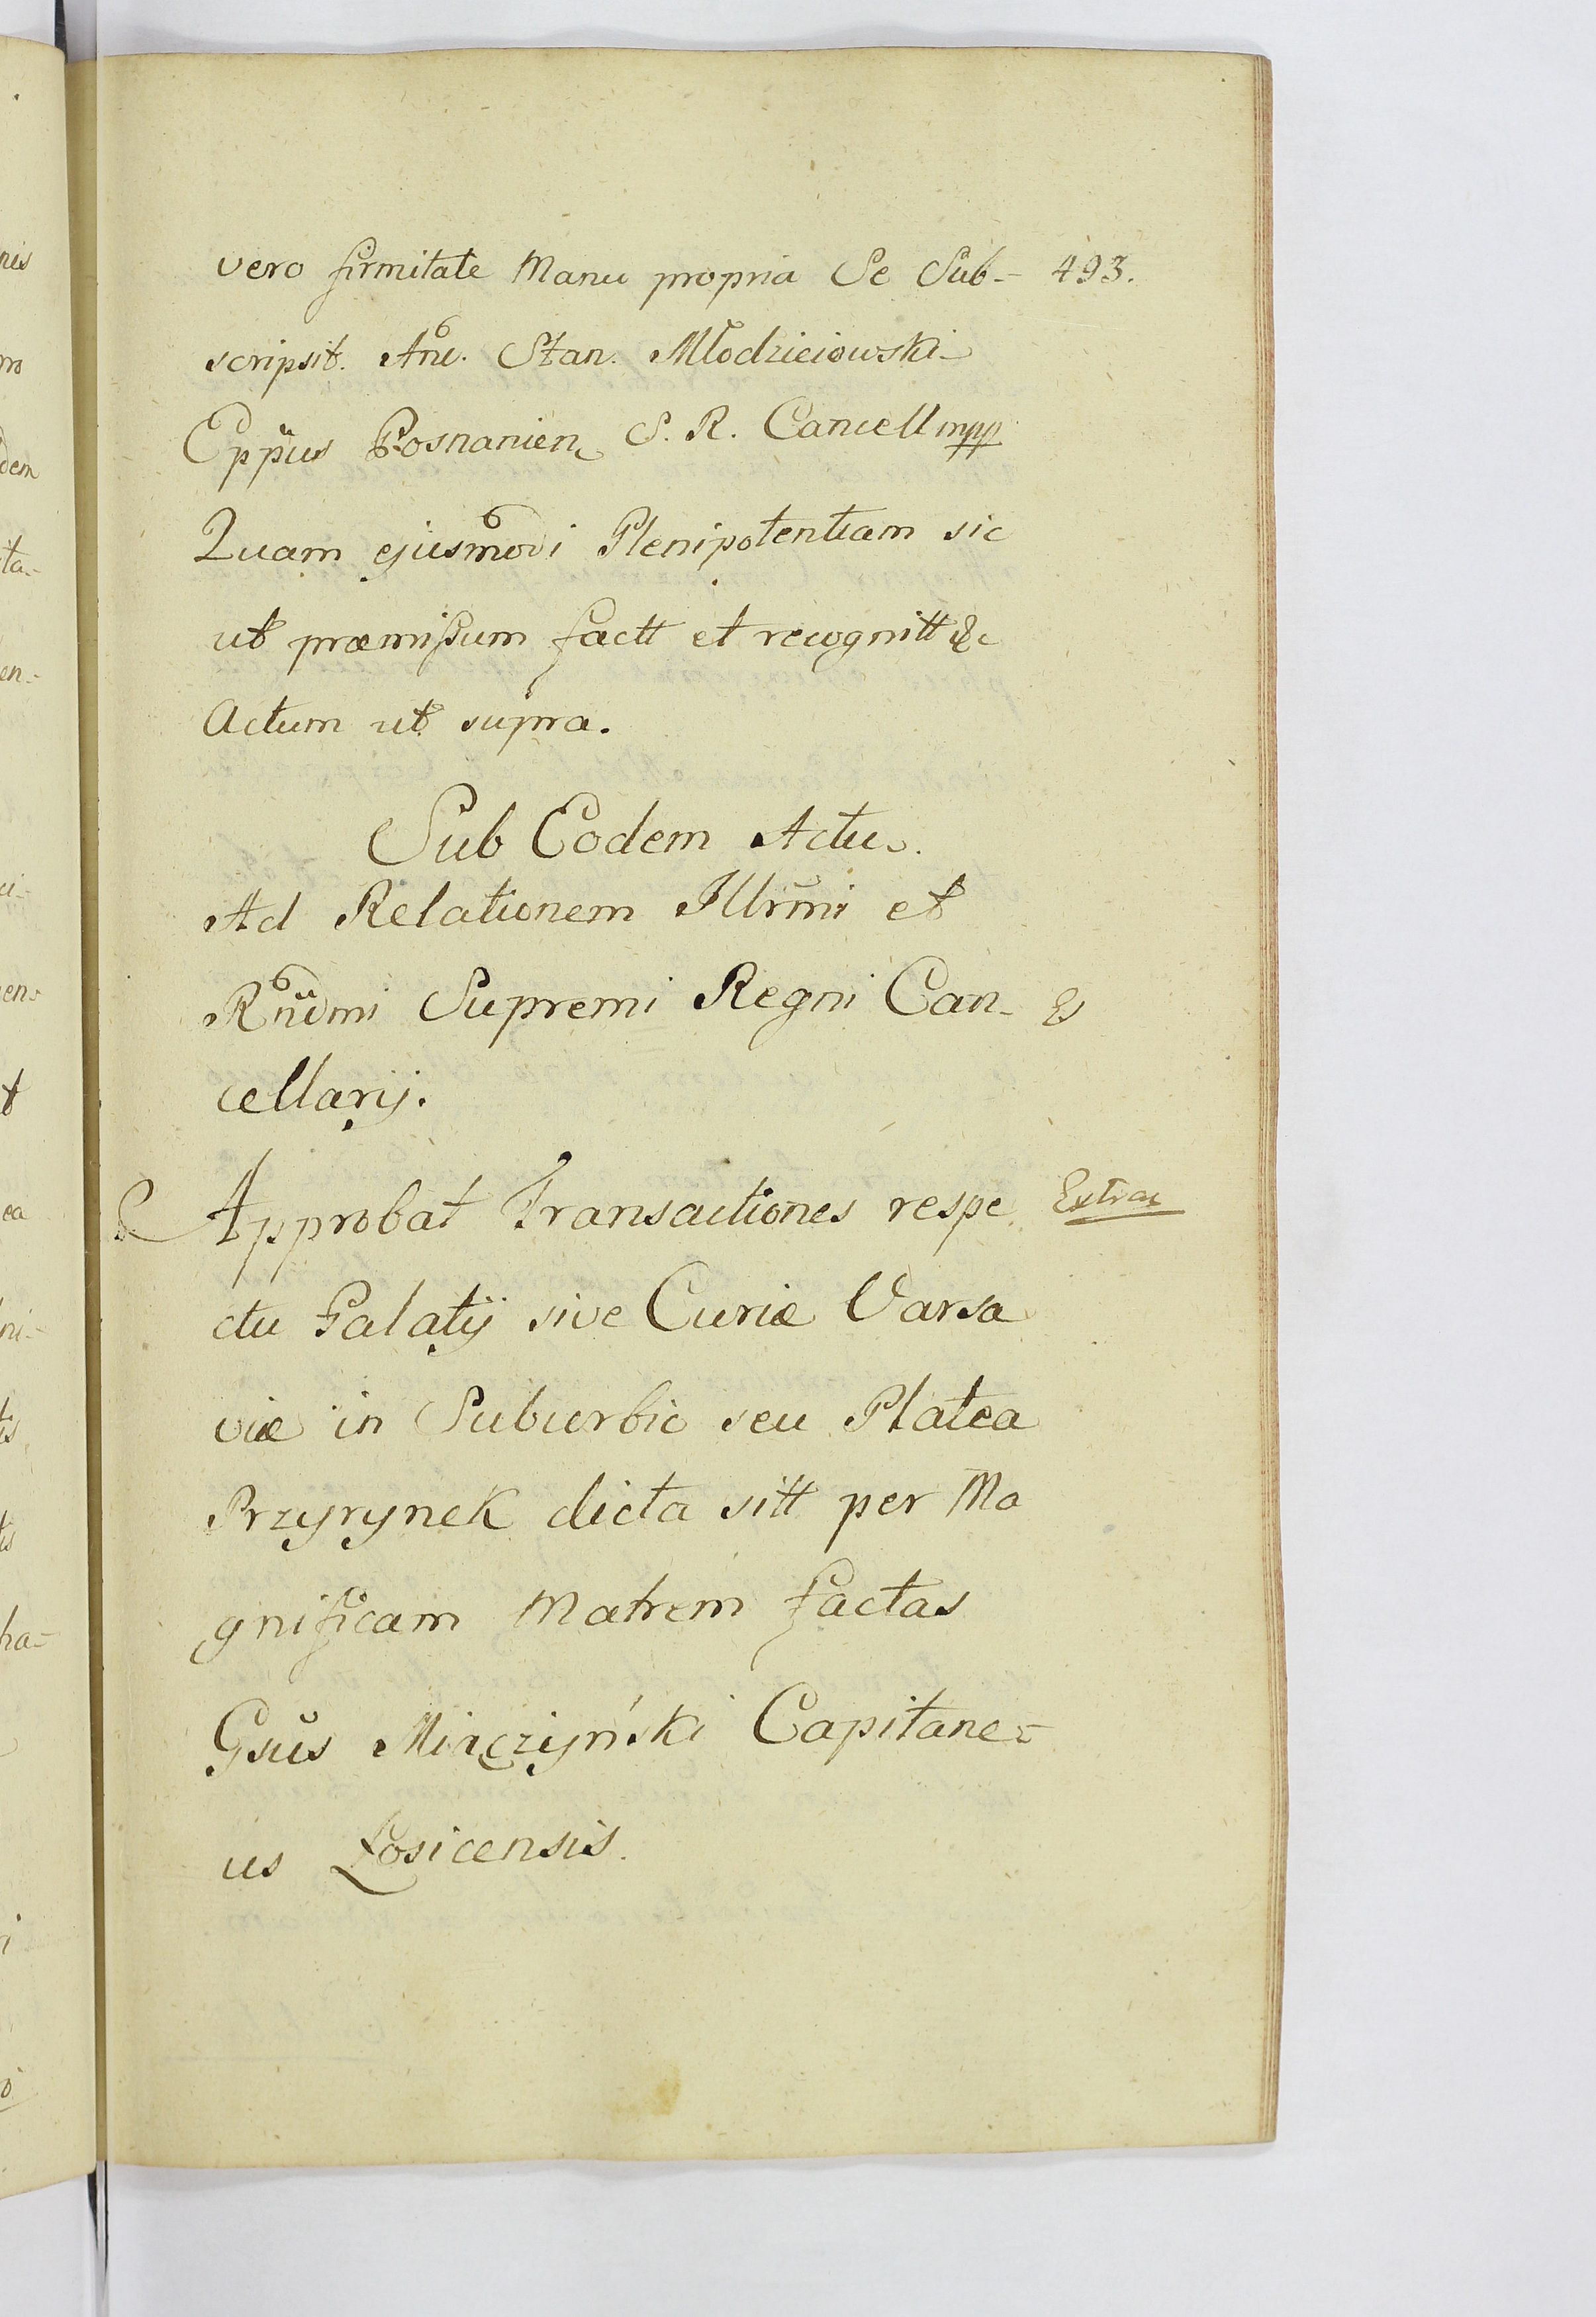 vero firmitate Manu propria Se Sub- 493.
scripsit. And. Stan. Młodzieiowski
Eppus Posnanien S. R. Cancell mpp
Quam ejusmodi Plenipotentiam sic
ut præmissum factt et recognitt &c
Actum ut supra.
Sub Eodem Actu.
Ad Relationem Illrmi et
Rndmi Supremi Regni Can-
cellarij.
Approbat Transactiones respe Extrac
ctu Palatij sive Curiæ Varsa
viæ in Suburbio seu Platea
Przyrynek dicta sitt per Ma
gnificam Matrem factas
Gsus Mirczyński Capitane-
us Łosicensis.